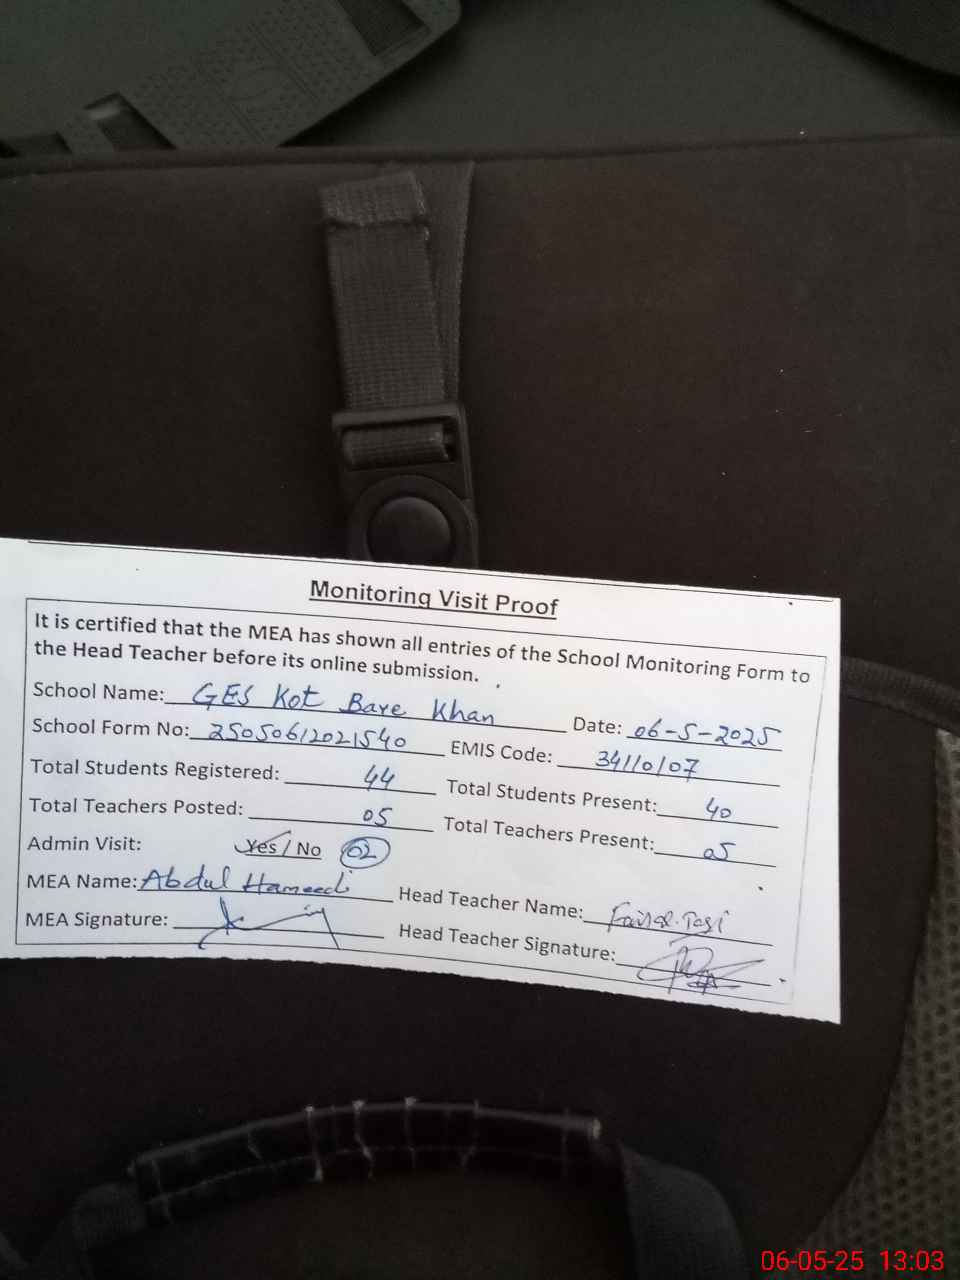 Monitoring Visit Proof
It is certified that the MEA has shown all entries of the School Monitoring Form to
the Head Teacher before its online submission.
School Name: GES Kot Bare Khan Date: 06-5-2025
School Form No: 25050612021540 EMIS Code: 34110107
Total Students Registered: 44 Total Students Present: 40
Total Teachers Posted: 05 Total Teachers Present: 05
Admin Visit: Yes / No 02
MEA Name: Abdul Hameed Head Teacher Name:
MEA Signature: Head Teacher Signature:
06-05-25 13:03